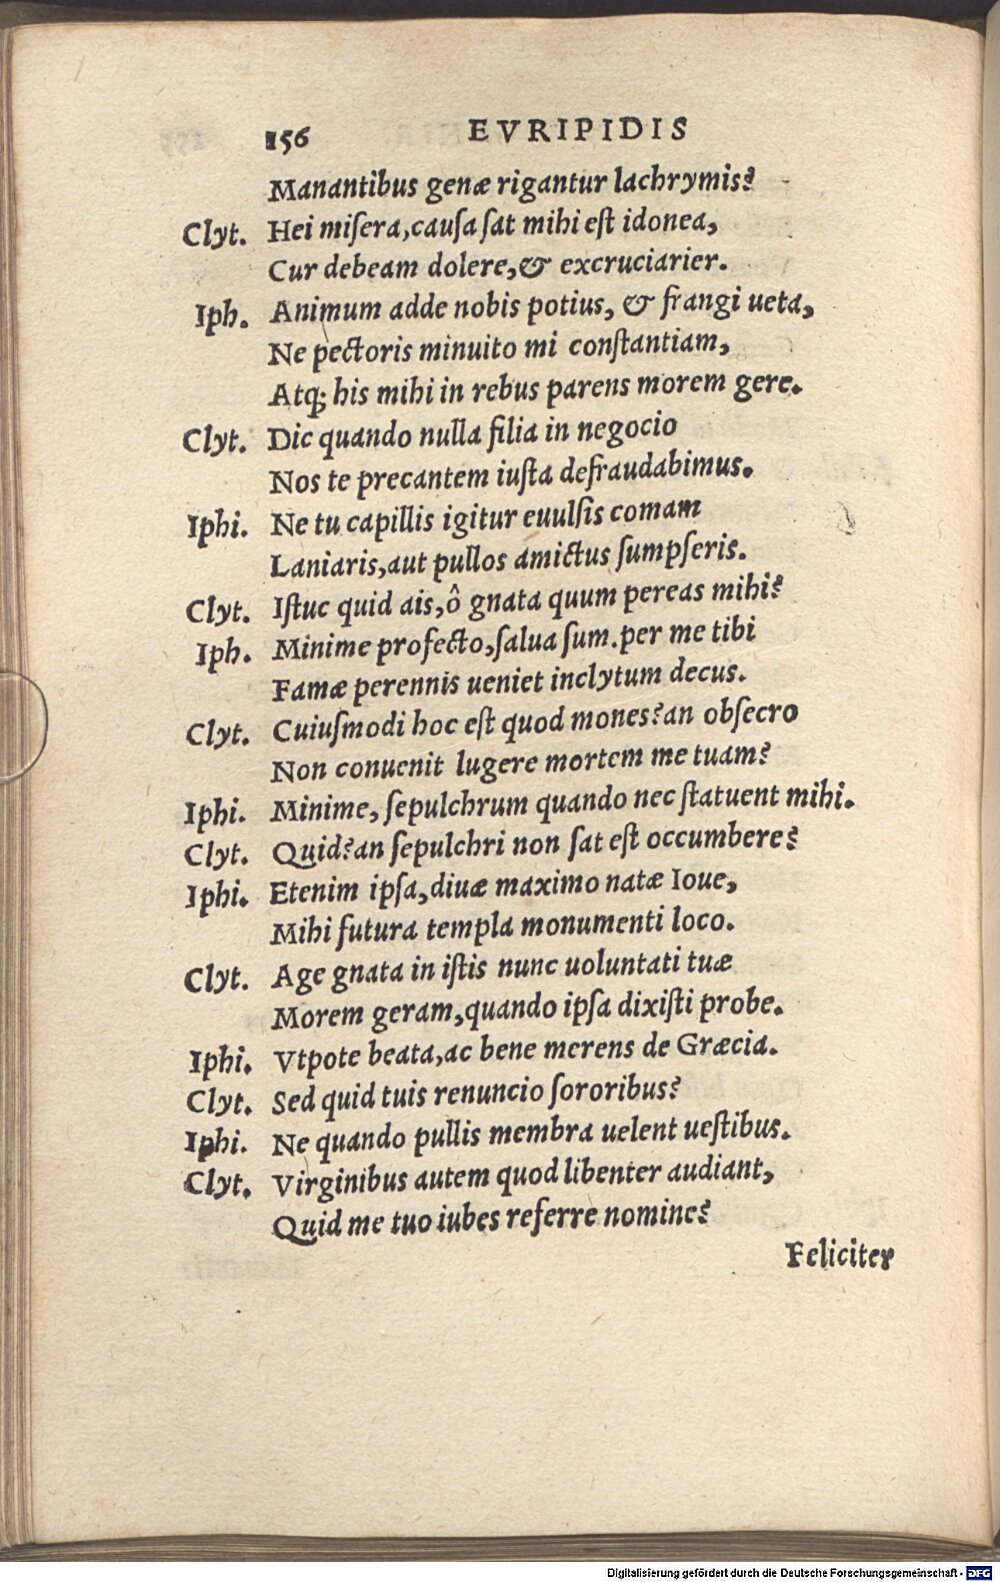 156 EVRIPIDIS
Manantibus genæ rigantur lachrymis?
Clyt. Hei miſera, cauſa ſat mihi eſt idonea,
Cur debeam dolere, & excruciarier.
Iph. Animum adde nobis potius, & frangi ueta,
Ne pectoris minuito mi conſtantiam,
Atq; his mihi in rebus parens morem gere.
Clyt. Dic quando nulla filia in negocio
Nos te precantem iuſta defraudabimus.
Iphi. Ne tu capillis igitur euulſis comam
Laniaris, aut pullos amictus ſumpſeris.
Clyt. Iſtuc quid ais, ô gnata quum pereas mihi?
Iph. Minime profecto, ſalua ſum. per me tibi
Famæ perennis ueniet inclytum decus.
Clyt. Cuiuſmodi hoc eſt quod mones? an obſecro
Non conuenit lugere mortem me tuam?
Iphi. Minime, ſepulchrum quando nec ſtatuent mihi.
Clyt. Quid? an ſepulchri non ſat eſt occumbere?
Iphi. Etenim ipſa, diuæ maximo natæ Ioue,
Mihi futura templa monumenti loco.
Clyt. Age gnata in iſtis nunc uoluntati tuæ
Morem geram, quando ipſa dixiſti probe.
Iphi. Vtpote beata, ac bene merens de Græcia.
Clyt. Sed quid tuis renuncio ſororibus?
Iphi. Ne quando pullis membra uelent ueſtibus.
Clyt. Virginibus autem quod libenter audiant,
Quid me tuo iubes referre nomine?
Feliciter
Digitalisierung gefördert durch die Deutsche Forschungsgemeinschaft - DFG